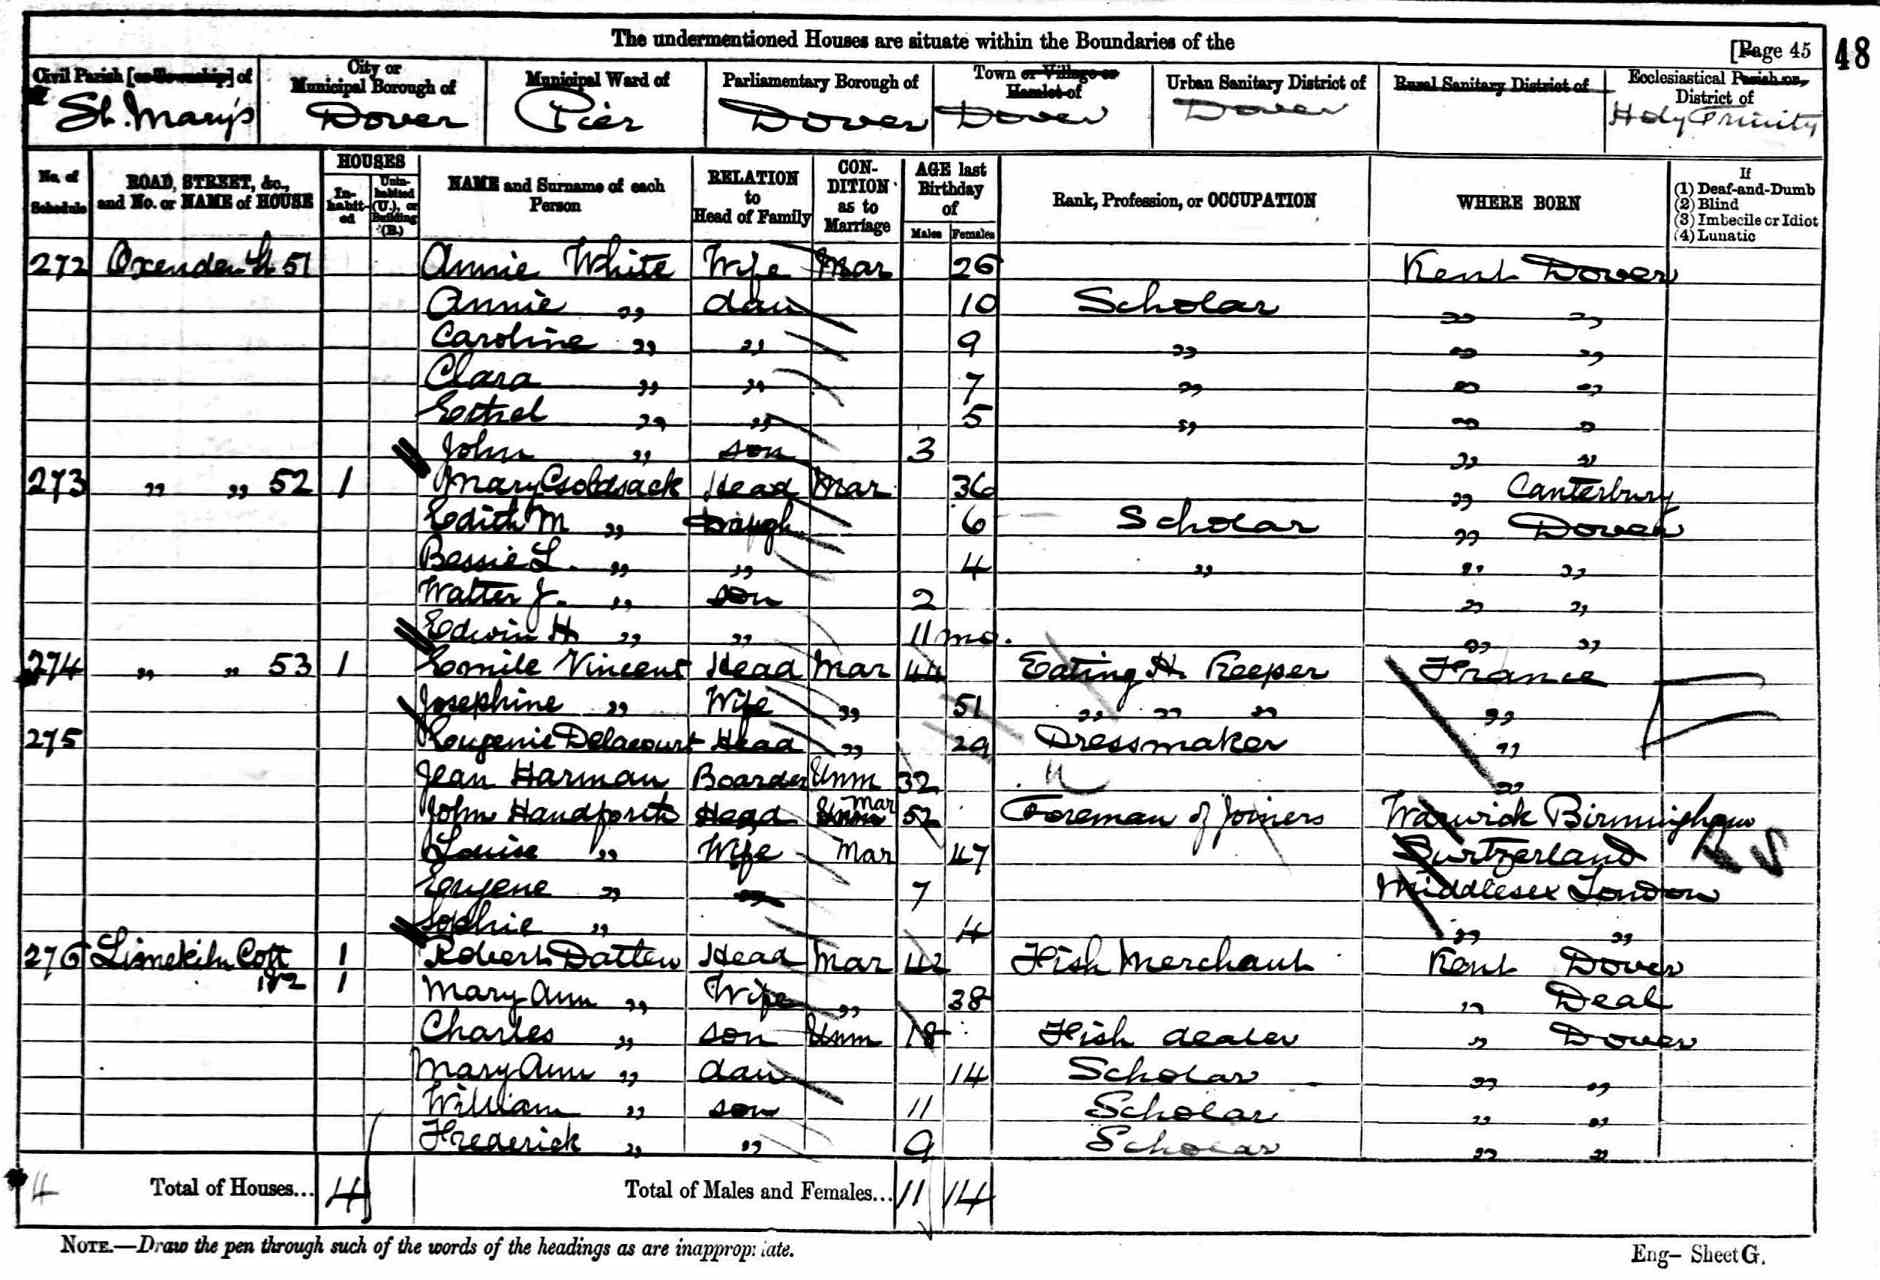 The undermentioned Houses are situate within the Boundaries of the
[Page 45 48
Civil Parish [or Township] of City or Municipal Borough of Municipal Ward of Parliamentary Borough of Town or Village or Hamlet of Urban Sanitary District of Rural Sanitary District of Ecclesiastical Parish or District of
St. Mary's Dover Pier Dover Dover Dover Holy Trinity
No. of Schedule ROAD, STREET, &c., and No. or NAME of HOUSE HOUSES Inhabited Uninhabited (U.), or Building (B.) NAME and Surname of each Person RELATION to Head of Family CONDITION as to Marriage AGE last Birthday of Males Females Rank, Profession, or OCCUPATION WHERE BORN If (1) Deaf-and-Dumb (2) Blind (3) Imbecile or Idiot (4) Lunatic
272 Oxenden St 51 Annie White Wife Mar 26 Kent Dover
Annie " dau 10 Scholar " "
Caroline " " 9 " " "
Clara " " 7 " " "
Ethel " " 5 " " "
John " son 3 " "
273 " " 52 1 Mary Goldsack Head Mar 36 " Canterbury
Edith M " Daugh 6 Scholar " Dover
Bessie L. " " 4 " " "
Walter J. " son 2 " "
Edwin H. " " 11 mo. " "
274 " " 53 1 Emile Vincent Head Mar 44 Eating H. Keeper France
Josephine " Wife " 51 " " " "
275 Eougenie Delacourt Head " 29 Dressmaker "
Jean Harman Boarder Unm 32 " "
John Handforth Head Unm Mar 52 Foreman of Joiners Warwick Birmingham
Louise " Wife Mar 47 Switzerland
Eugene " 7 Middlesex London
Sophie " 4 " "
276 Limekiln Cott 1 Robert Datten Head Mar 42 Fish Merchant Kent Dover
1&2 1 Mary Ann " Wife " 38 " Deal
Charles " son Unm 18 Fish dealer " Dover
Mary Ann " dau 14 Scholar " "
William " son 11 Scholar " "
Frederick " " 9 Scholar " "
4 Total of Houses... 4 Total of Males and Females... 11 14
NOTE.—Draw the pen through such of the words of the headings as are inappropriate.
Eng– Sheet G.